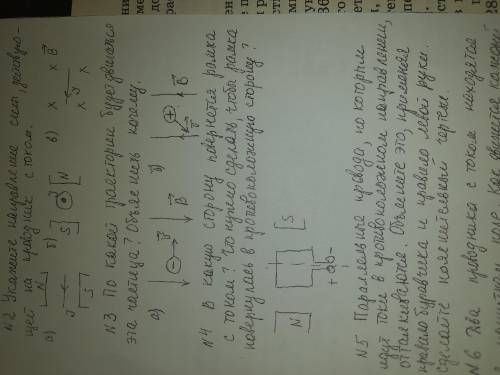 N2 Укажите направление сил, действую-
щей на проводник с током.
а) N S б) S N в) x x B⃗ x x
N3 По какой траектории будет двигаться
эта частица? Объяснить почему.
а) − υ⃗ B⃗ б) + υ⃗ B⃗
N4 В какую сторону повернется рамка
с током? Что нужно сделать чтобы рамка
повернулась в противоположную сторону?
N S
+ −
N5 Параллельные провода, по которым
идут токи в противоположном направлении,
отталкиваются. Объясните это, применяя
правило буравчика и правило левой руки.
сделайте пояснительный чертеж.
N6 Два проводника с током находятся